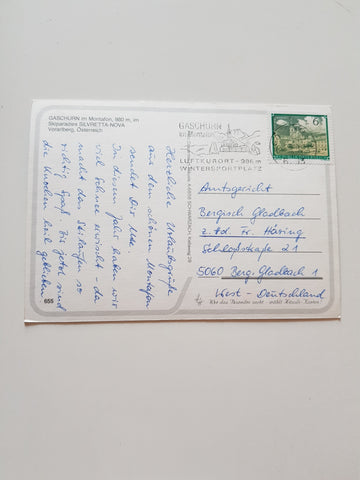 GASCHURN im Montafon, 980 m, im
Skiparadies SILVRETTA-NOVA
Vorarlberg, Österreich
Herzliche Urlaubsgrüße
aus dem schönen Montafon
sendet Dir
In diesem Jahr haben wir
viel Schnee erwischt - da
macht das Skilaufen so
richtig Spaß. Bis jetzt sind
die Knochen heil geblieben.
655
GASCHURN
im Montafon
LUFTKURORT - 986 m
WINTERSPORTPLATZ
6
Amtsgericht
Bergisch Gladbach
z. Hd. Fr. Häring
Schloßstraße 21
5060 Berg. Gladbach 1
West - Deutschland